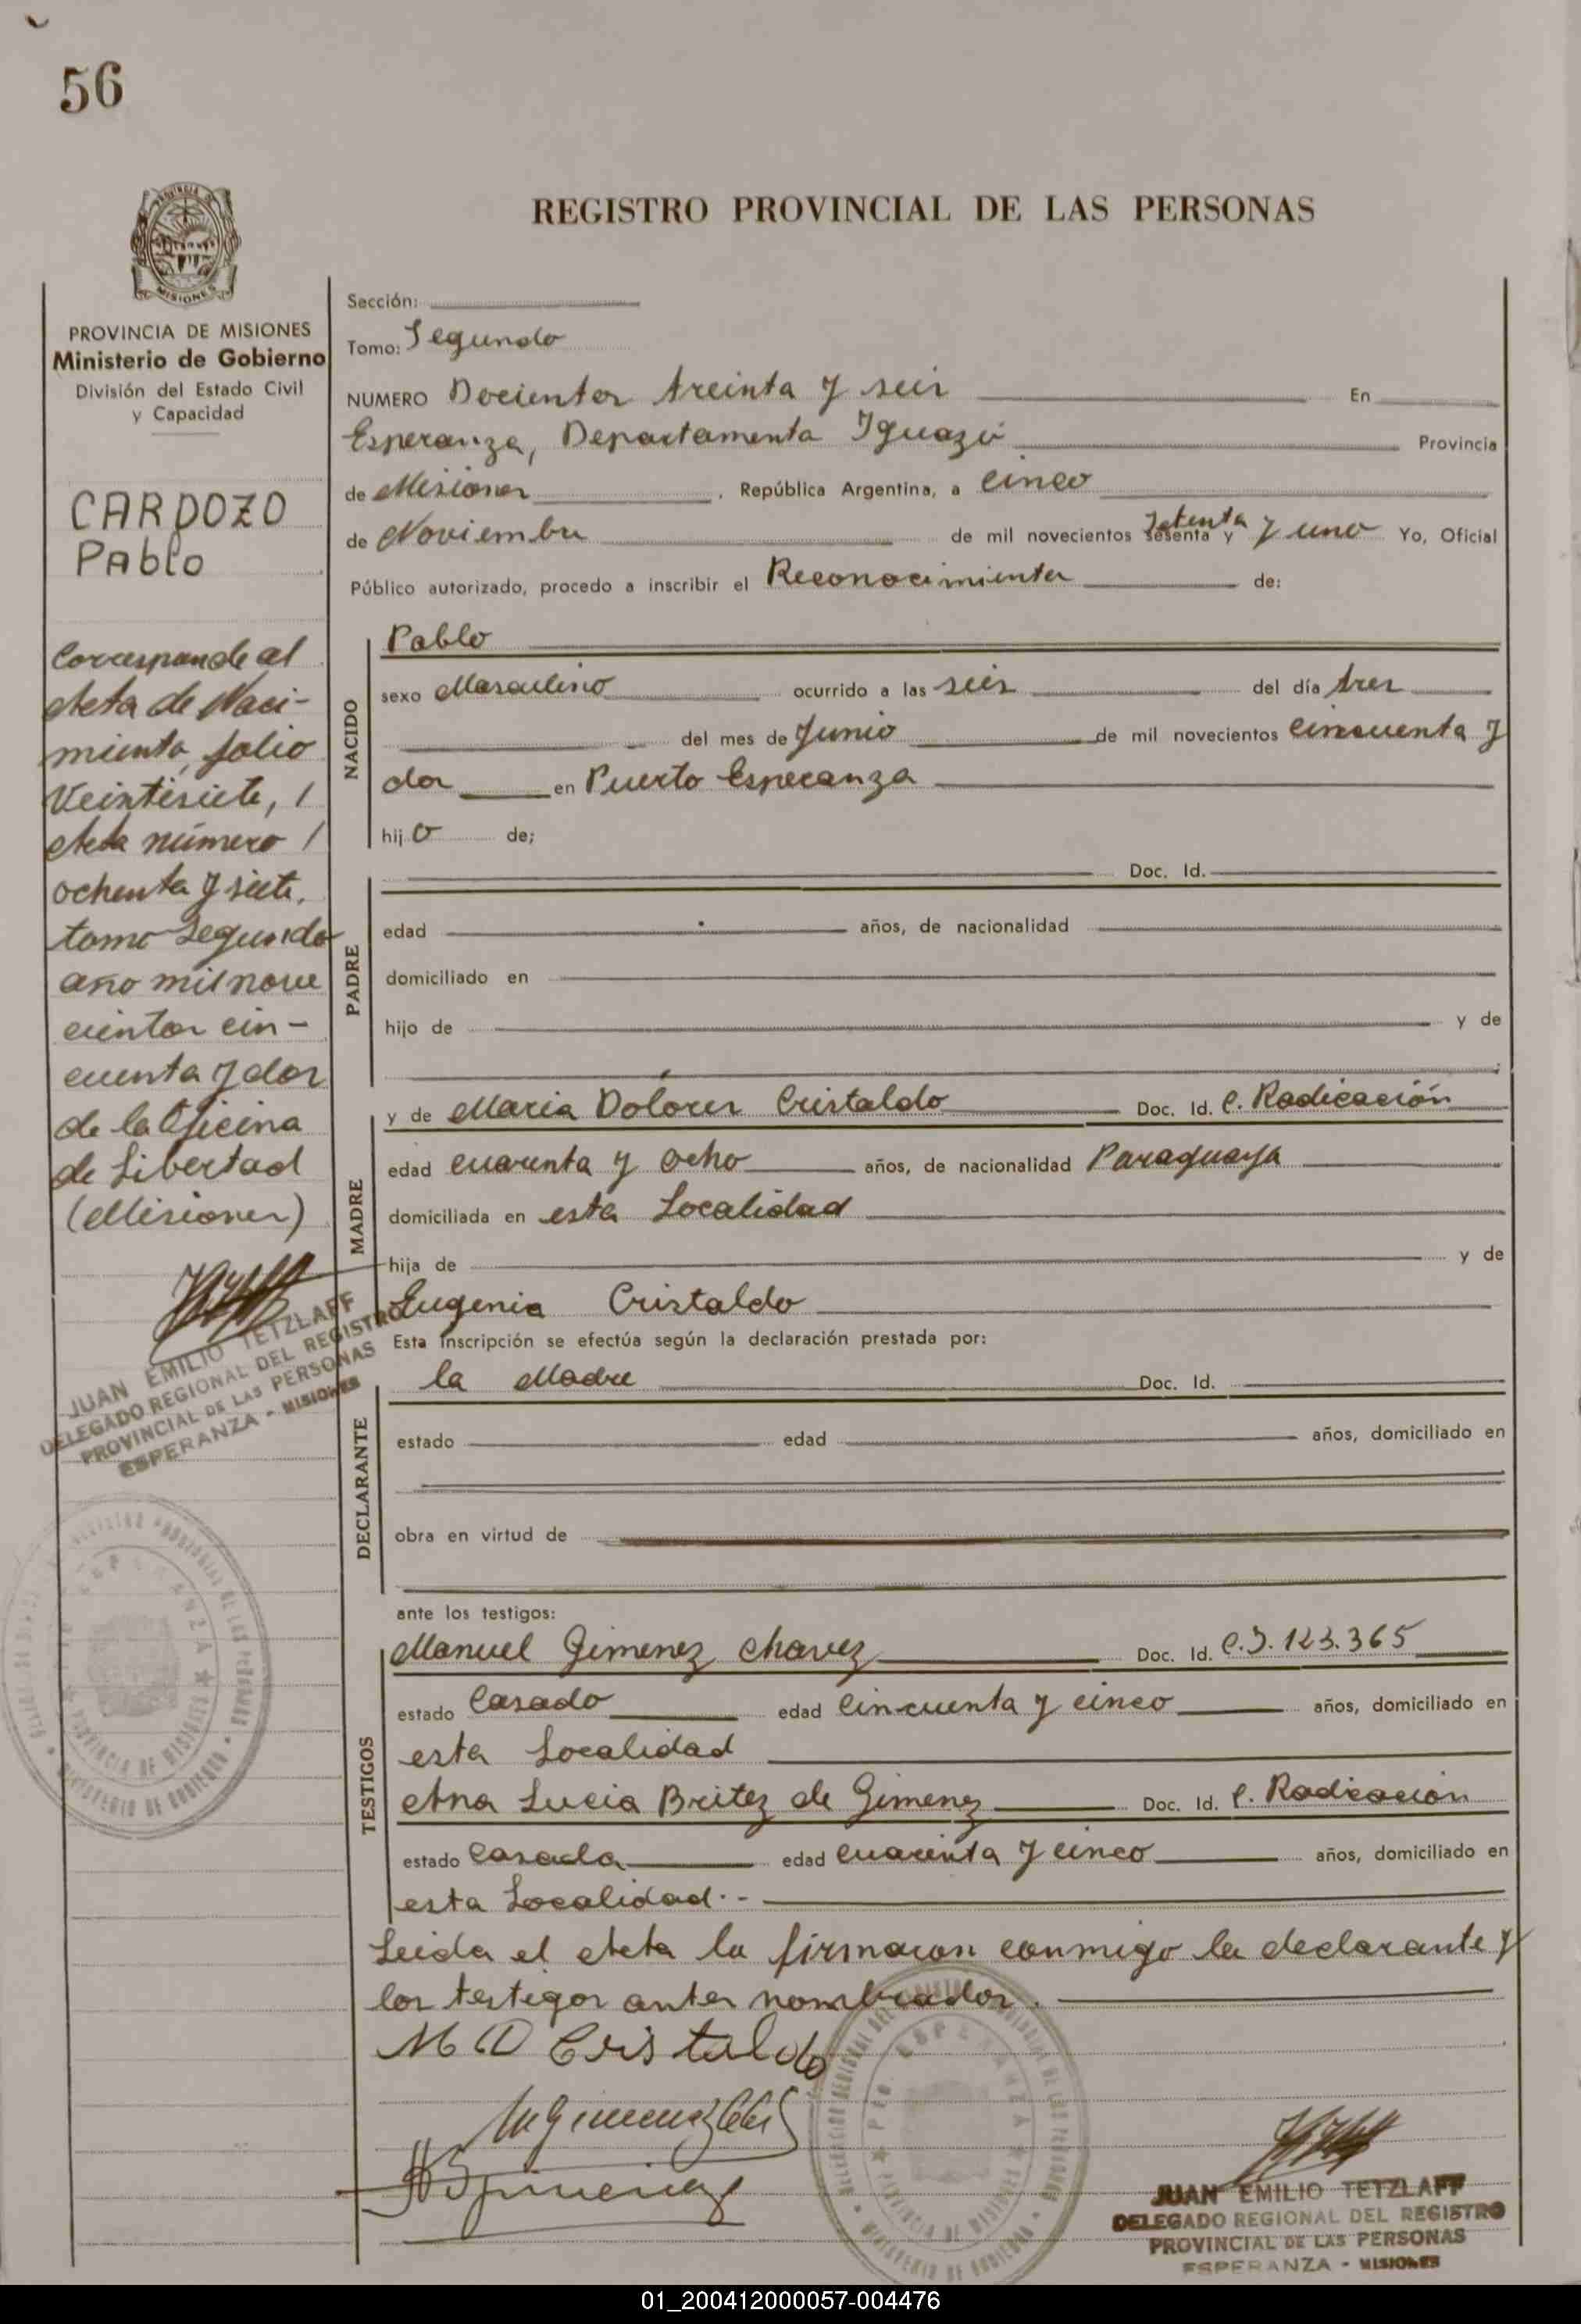 56
REGISTRO PROVINCIAL DE LAS PERSONAS
PROVINCIA DE MISIONES
Ministerio de Gobierno
División del Estado Civil
y Capacidad
CARDOZO
Pablo
Corresponde al
Acta de Naci-
miento, folio
Veintisiete, /
Acta número /
ochenta y siete,
tomo Segundo
año mil nove
cientos cin-
cuenta y dos
de la Oficina
de Libertad
(Misiones)
JUAN EMILIO TETZLAFF
DELEGADO REGIONAL DEL REGISTRO
PROVINCIAL DE LAS PERSONAS
ESPERANZA - MISIONES
Sección:
Tomo: Segundo
NUMERO Docientos treinta y seis En
Esperanza, Departamento Iguazú Provincia
de Misiones, República Argentina, a cinco
de Noviembre de mil novecientos sesenta y Setenta y uno Yo, Oficial
Público autorizado, procedo a inscribir el Reconocimiento de:
NACIDO
Pablo
sexo Masculino ocurrido a las seis del día tres
del mes de Junio de mil novecientos cincuenta y
dos en Puerto Esperanza
hijo de;
PADRE
Doc. Id.
edad años, de nacionalidad
domiciliado en
hijo de y de
MADRE
y de Maria Dolores Cristaldo Doc. Id. C. Radicación
edad cuarenta y ocho años, de nacionalidad Paraguaya
domiciliada en esta Localidad
hija de y de
Eugenia Cristaldo
Esta inscripción se efectúa según la declaración prestada por:
DECLARANTE
la Madre Doc. Id.
estado edad años, domiciliado en
obra en virtud de
ante los testigos:
TESTIGOS
Manuel Gimenez Chavez Doc. Id. C.I. 123.365
estado Casado edad cincuenta y cinco años, domiciliado en
esta Localidad
Ana Lucia Britez de Gimenez Doc. Id. C. Radicación
estado Casada edad cuarenta y cinco años, domiciliado en
esta Localidad.-
Leida el Acta la firmaron conmigo la declarante y
los testigos antes nombrados.
M D Cristaldo
JUAN EMILIO TETZLAFF
DELEGADO REGIONAL DEL REGISTRO
PROVINCIAL DE LAS PERSONAS
ESPERANZA - MISIONES
01_200412000057-004476